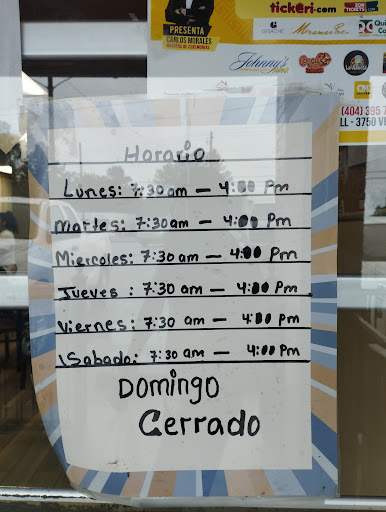 tickeri.com
TICKETS.COM
PRESENTA
CARLOS MORALES
MAESTRO DE CEREMONIAS
Johnny's
(404) 395
LL - 3750
Horario
Lunes: 7:30 am — 4:00 Pm
Martes: 7:30 am — 4:00 Pm
Miercoles: 7:30 am — 4:00 Pm
Jueves : 7:30 am — 4:00 Pm
Viernes: 7:30 am — 4:00 Pm
Sabado: 7:30 am — 4:00 Pm
Domingo
Cerrado